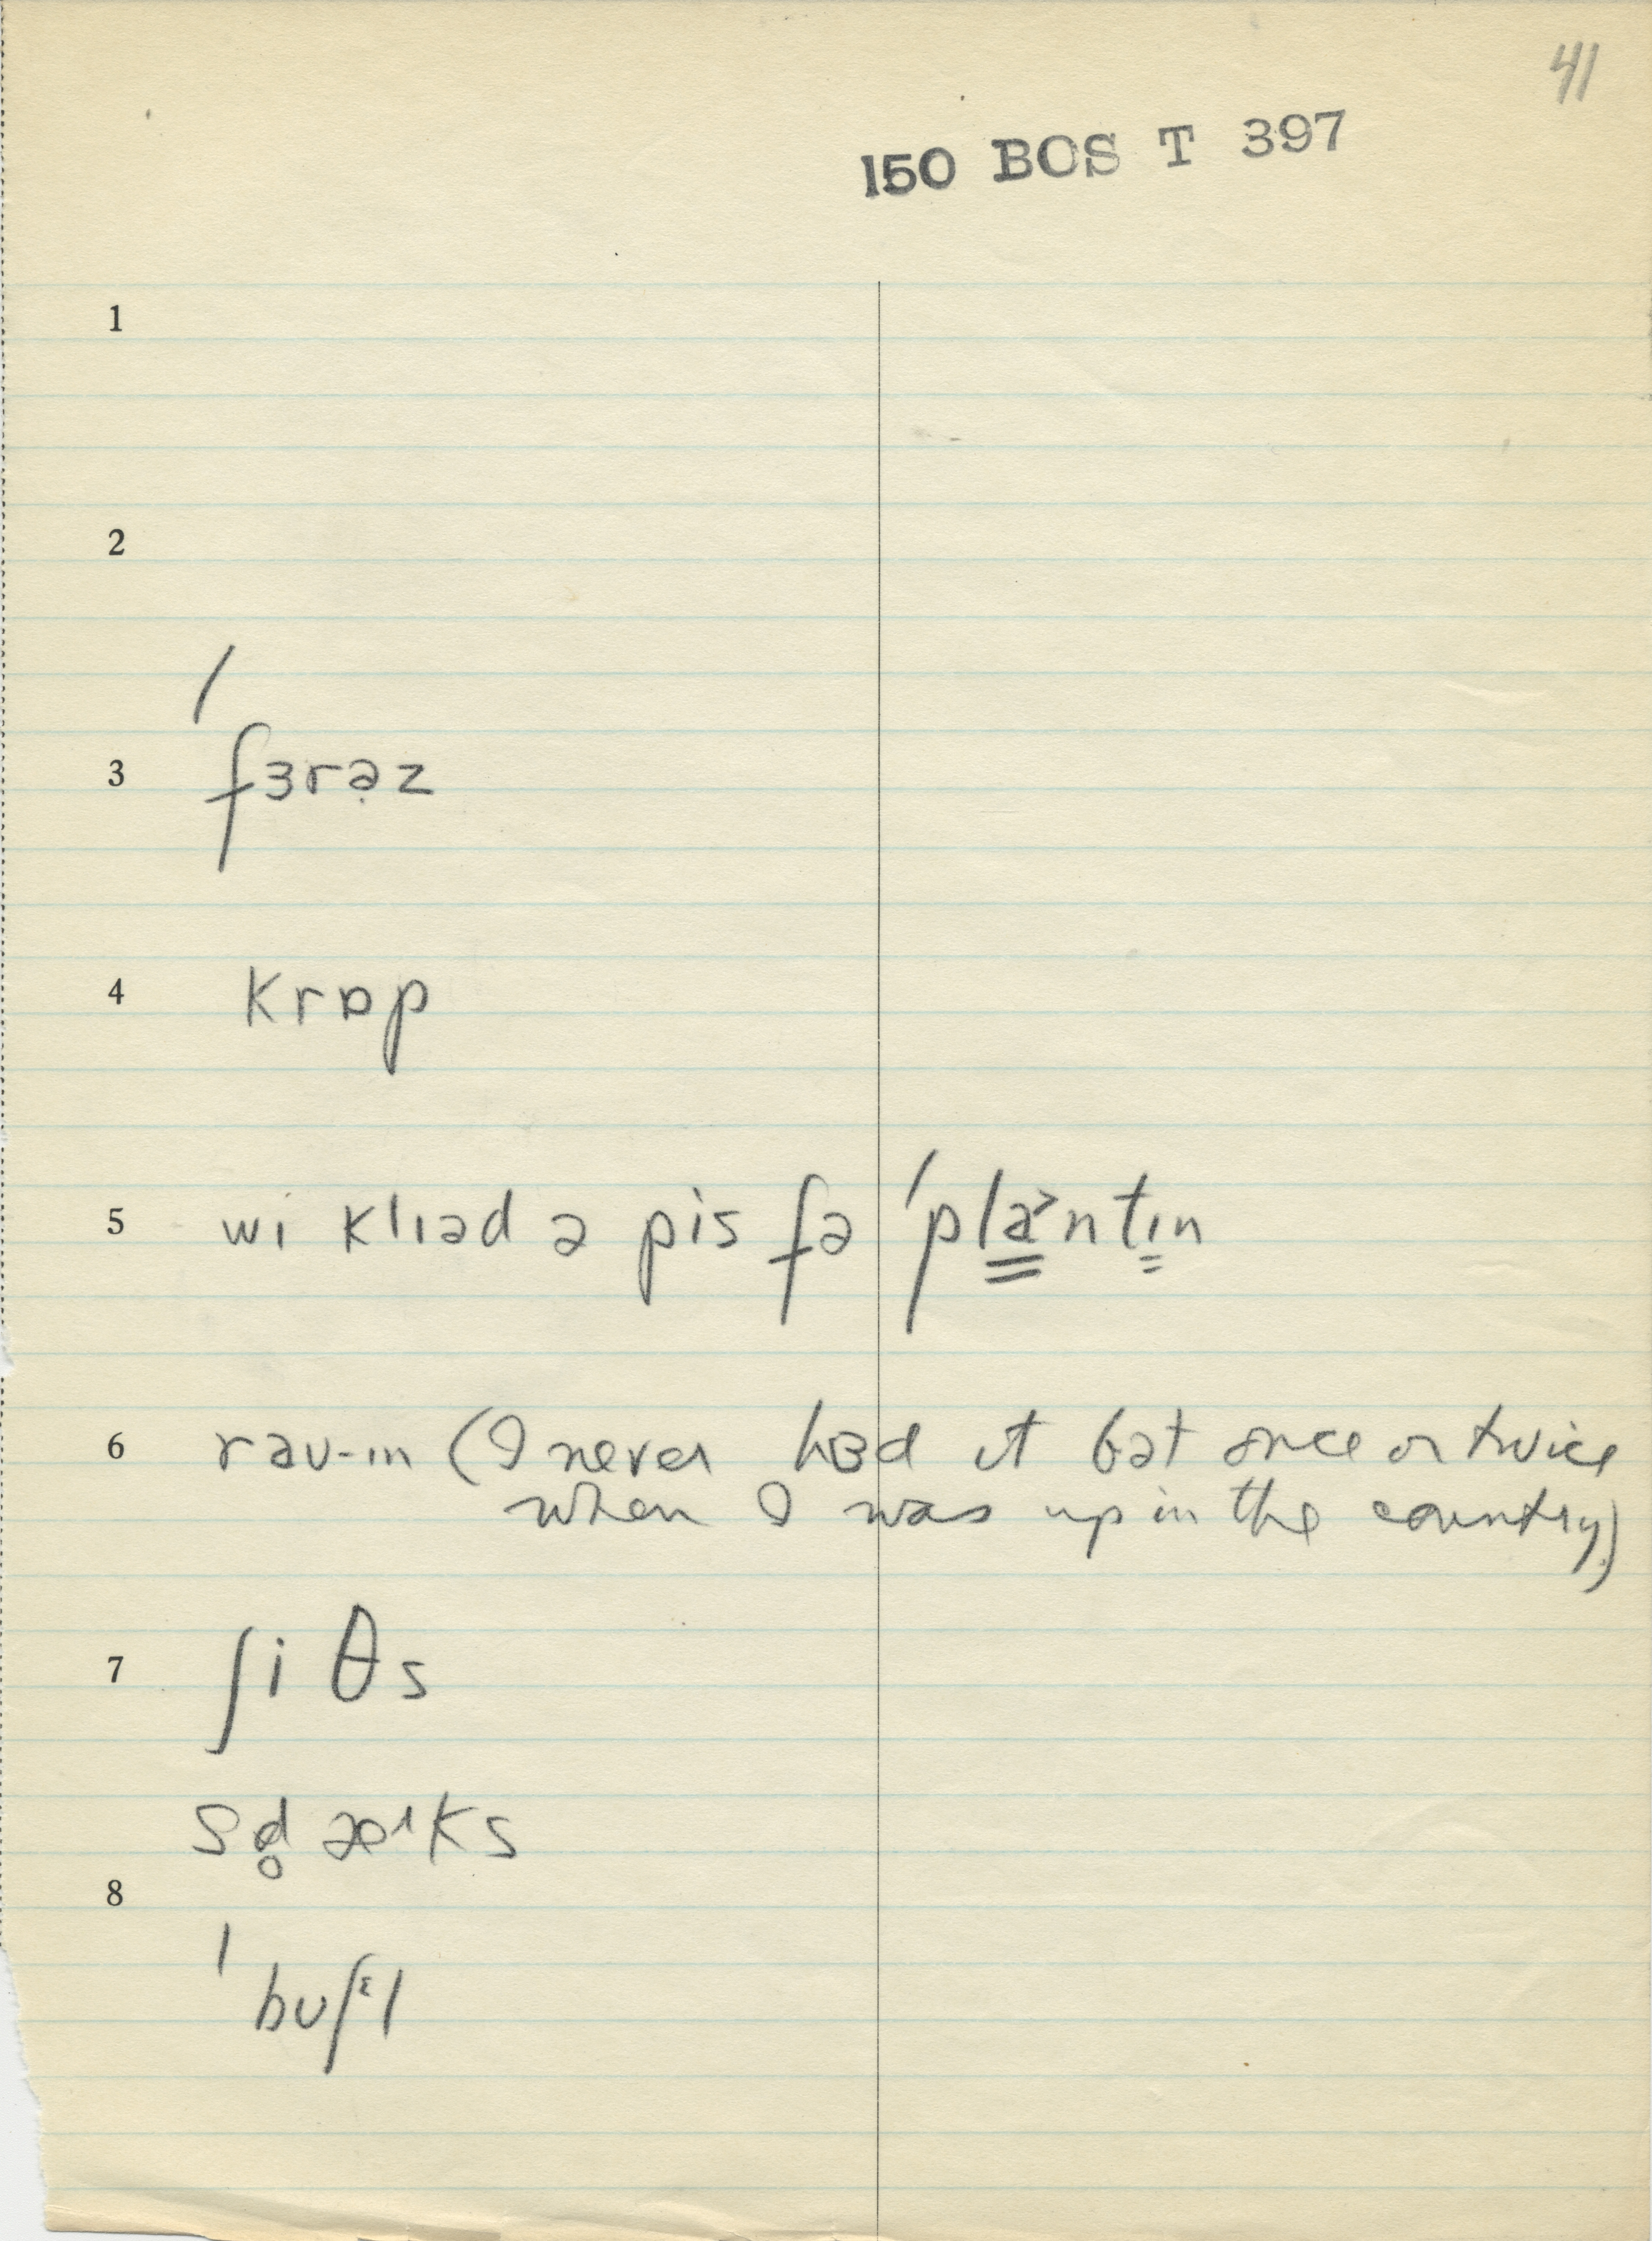 41
150 BOS T 397
1
2
3 ˈfɜrə̣z
4 krɒp
5 wi klɪəd ə pis fə ˈpla̳˃ntɪ̳n
6 raʊ-ɪn (I never hɜd it bət once or twice
when I was up in the country)
7 ʃiθs
sd̥æᶦks
8
ˈbʊʃᵋl